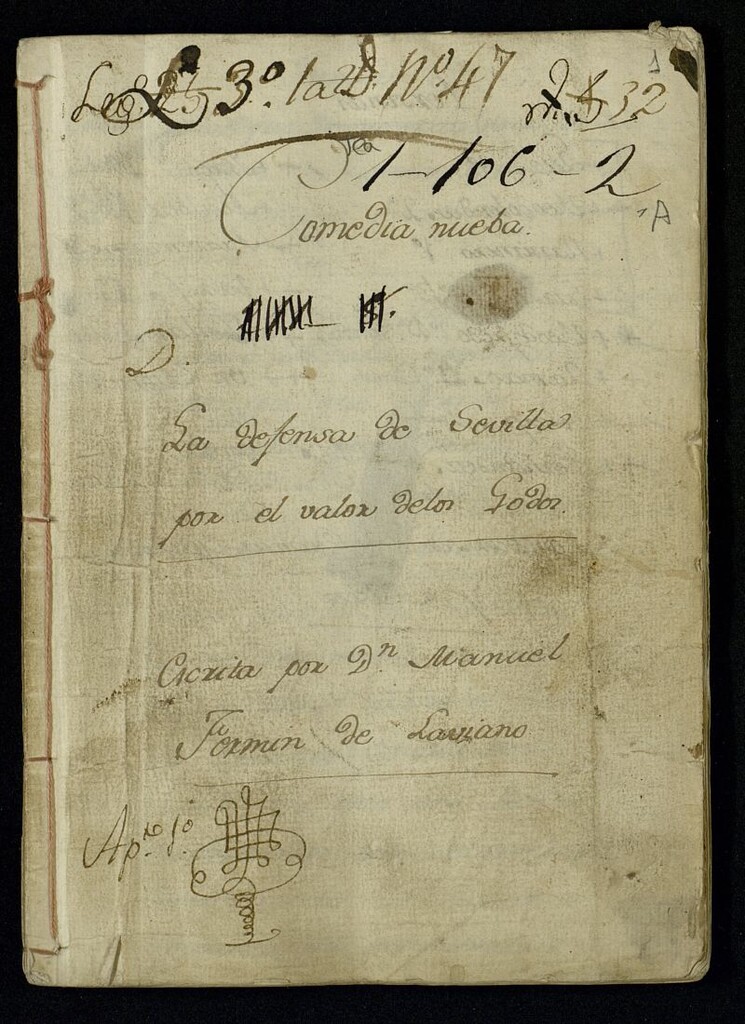 3º. Nº. 47
32
1
Tea
1-106-2
A
Comedia nueba.
D.
La defensa de Sevilla
por el valor delos Godos.
Escrita por Dn Manuel
Fermin de Laviano
Ap.te 1º